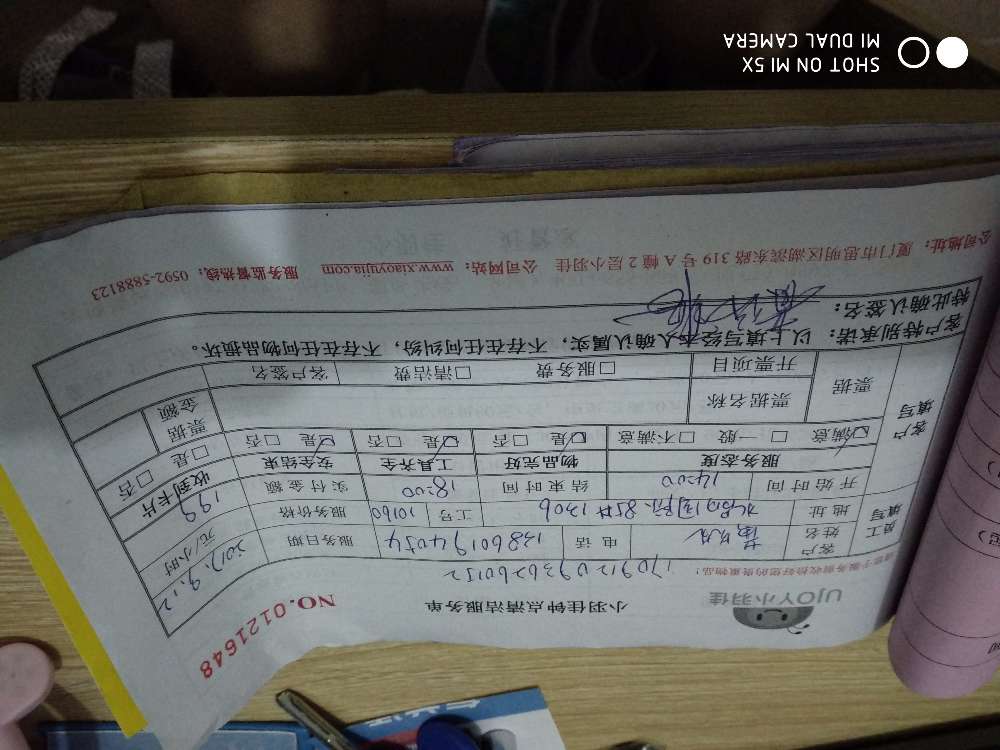 UJOY小羽佳
小羽佳钟点清洁服务单
NO.0121648
1709120936260152
员工填写
客户姓名
电话
13860194054
服务日期
2017.9.12
地址
工号
10160
服务价格
199
元/小时
开始时间
14:00
结束时间
18:00
实付金额
收到卡片
□是 □否
客户填写
服务态度
物品完好
工具齐全
安全结束
☑满意 □一般 □不满意
☑是 □否
☑是 □否
☑是 □否
票据
票据名称
票据金额
开票项目
□服务费 □清洁费
客户签名
客户特别承诺：以上填写经本人确认属实，不存在任何纠纷，不存在任何物品损坏。
特此确认签名：
公司地址：厦门市思明区湖滨东路 319 号 A 幢 2 层小羽佳 公司网站：www.xiaoyujia.com 服务监督热线：0592-5888123
SHOT ON MI 5X
MI DUAL CAMERA